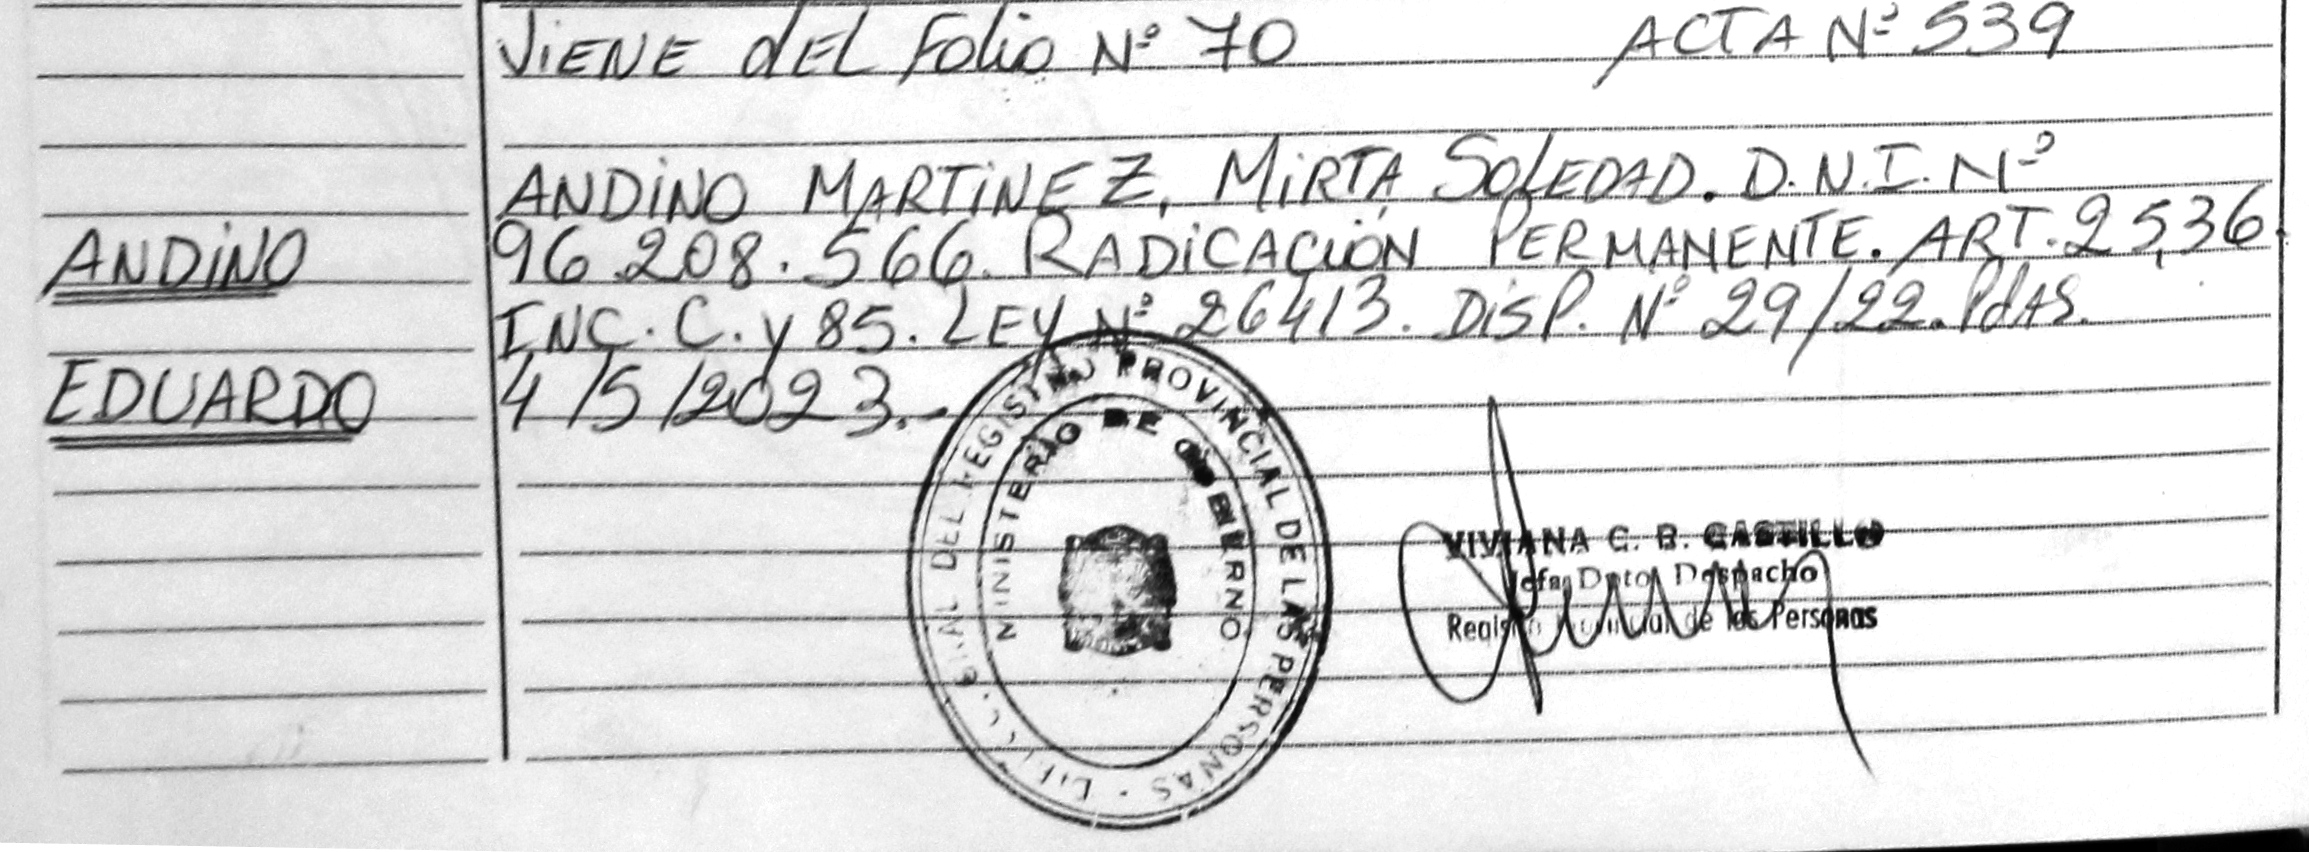 ViENE dEL Folio Nº 70 ACTA Nº 539
ANDiNO MARTiNEZ, MiRTA SOLEDAD. D.N.I. Nº
ANDiNO
96.208.566. RADiCACiÓN PERMANENTE. ART. 25,36
INC. C. y 85. LEY Nº 26413. DiSP. Nº 29/22. PdAS.
EDUARDO
4/5/2023.-
DEL REGISTRO PROVINCIAL DE LAS PERSONAS
MINISTERIO DE GOBIERNO
VIVIANA C. B. CASTILLO
Jefa Dpto Despacho
Registro Provincial de las Personas